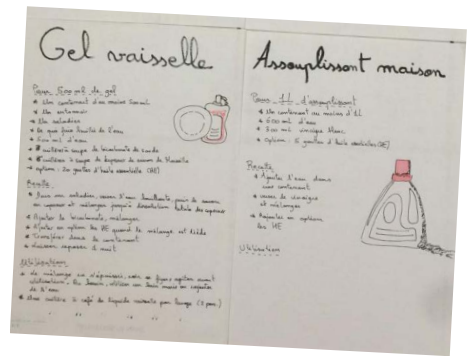 Gel vaisselle
Pour 500 ml de gel
* Un contenant d'au moins 500 ml
* Un entonnoir
* Un saladier
* De quoi faire bouillir de l'eau
* 500 ml d'eau
* cuillère à soupe de bicarbonate de soude
* cuillères à soupe de copeaux de savon de Marseille
* option : 20 gouttes d'huile essentielle (HE)
Recette
* Dans un saladier, verser l'eau bouillante, puis le savon
en copeaux et mélanger jusqu'à dissolution totale des copeaux
* Ajouter le bicarbonate, mélanger
* Ajouter en option les HE quand le mélange est tiède
* Transférer dans le contenant
* Laisser reposer 1 nuit
Utilisation
* Le mélange va s'épaissir, bien agiter avant
utilisation. Au besoin, utiliser un
de l'eau
* Une cuillère à café de liquide suffisante par lavage
Assouplissant maison
Pour 1L d'assouplissant
* Un contenant au moins d'1L
* 500 ml d'eau
* 500 ml vinaigre blanc
* option : 15 gouttes d'huile essentielle (HE)
Recette
* Ajouter l'eau dans
un contenant
* verser le vinaigre
et mélanger
* Rajouter en option
les HE
Utilisation